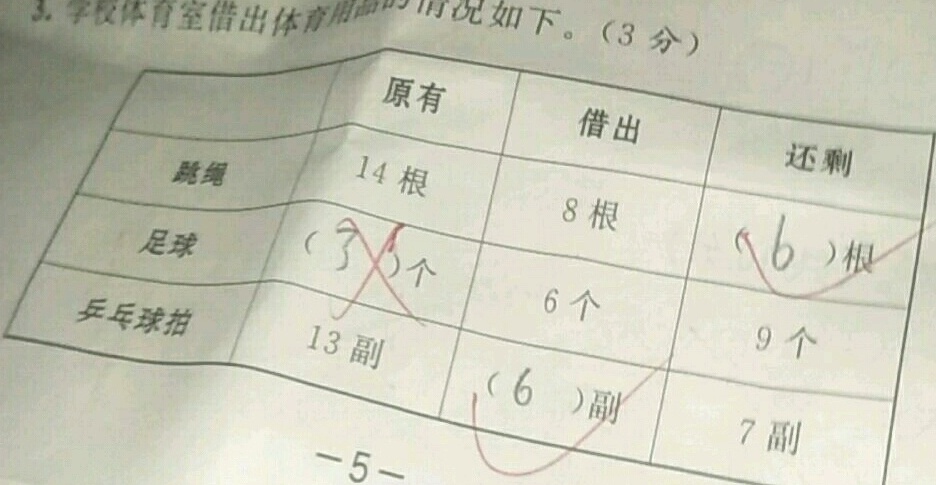 3. 学校体育室借出体育用品的情况如下。(3分)
原有 借出 还剩
跳绳 14根 8根 (6)根
足球 (3)个 6个 9个
乒乓球拍 13副 (6)副 7副
-5-